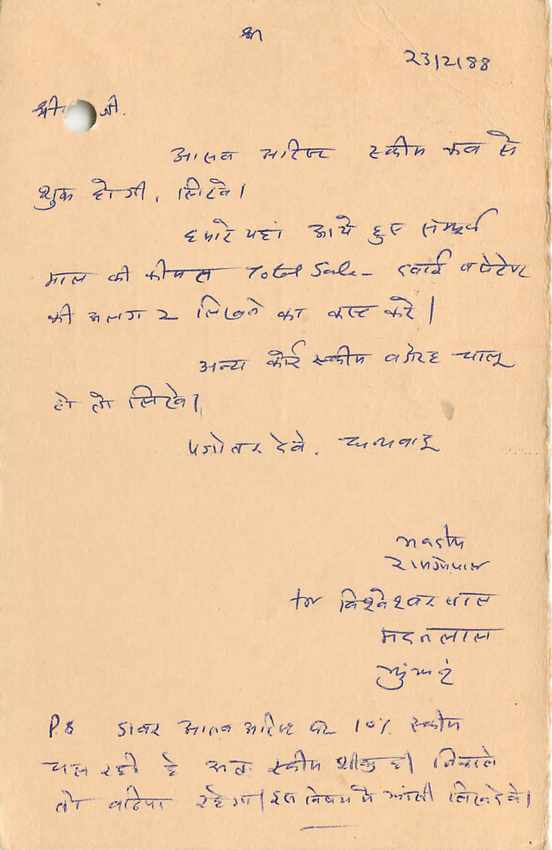 श्री
23/2/88
श्री जी.
आसव अरिष्ट स्कीम कब से
शुरू होगी, लिखें।
हमारे यहां आये हुए सम्पूर्ण
माल की कीमत Total Sale - दवाई पेटेण्ट
की अलग २ लिखने का कष्ट करे।
अन्य कोई स्कीम वगेरह चालू
हो तो लिखें।
पत्रोतर देवे. धन्यवाद
भवदीय
रामगोपाल
for विश्वेश्वर लाल
मदनलाल
P.S डाबर आसव अरिष्ट पर 10% स्कीम
चल रही है अतः स्कीम शीघ्र ही निकाले
तो बढिया रहेगा। इस विषय मे लिख देवे।